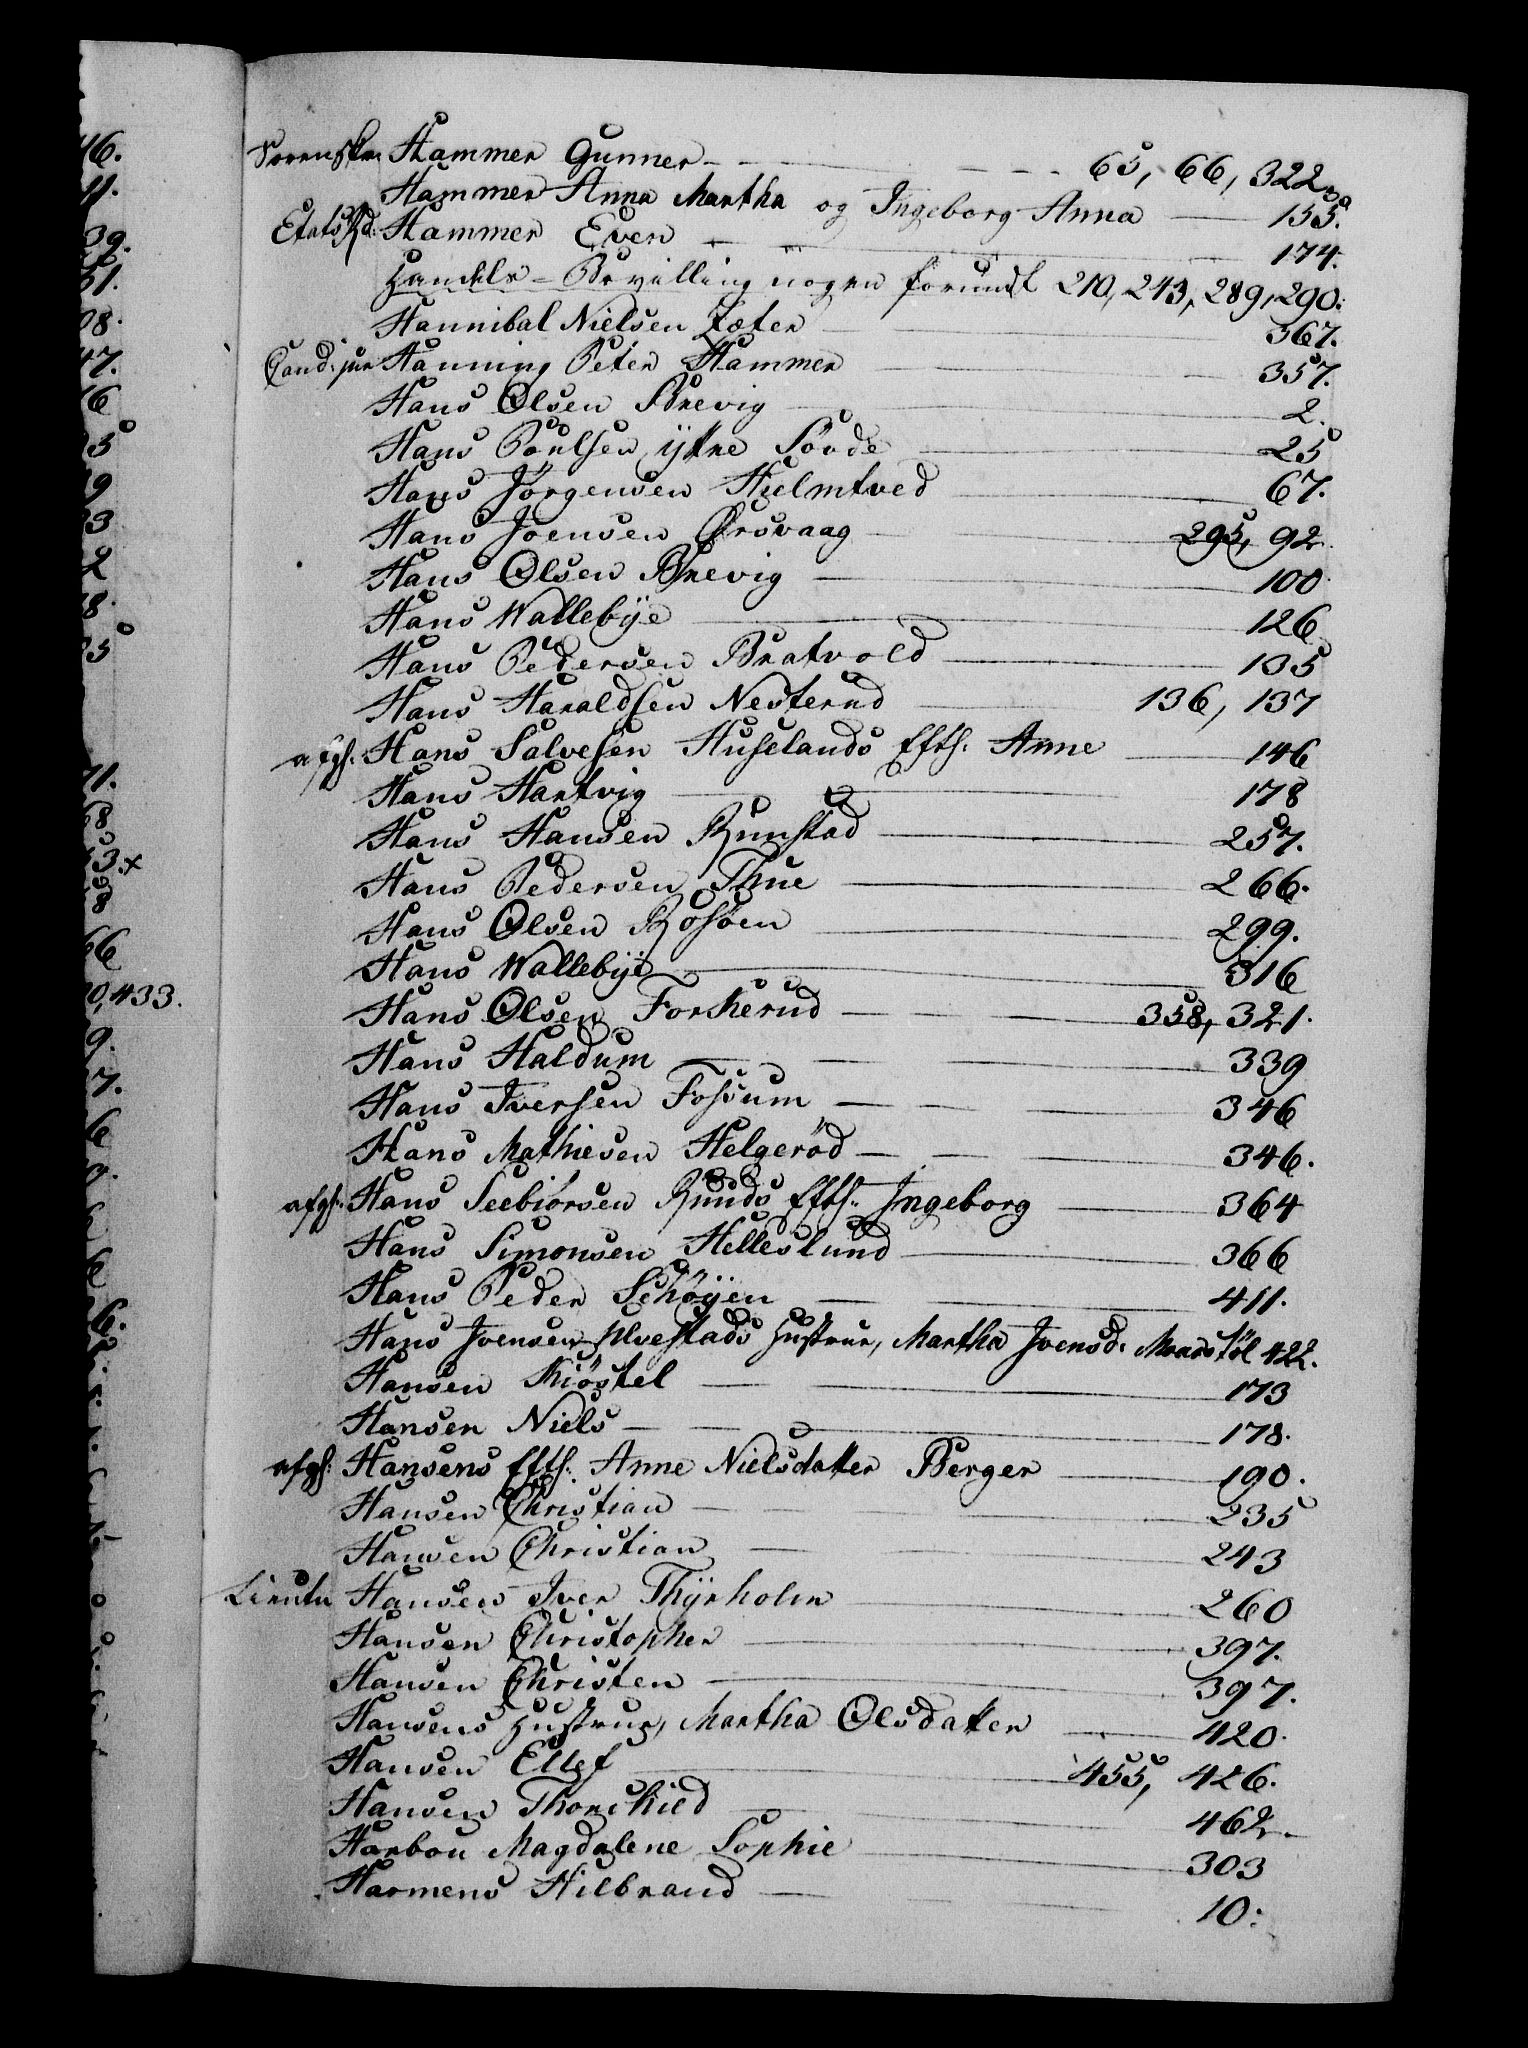 Sorenskr. Hammer Gunner - - - 65, 66, 322
Hammer Anna Martha og Ingeborg Anna — 155.
EtatsRd: Hammer Even - - 174.
Handels-Bevilling nogen forundt 210, 243, 289, 290:
Hannibal Nielsen Fæter — 367.
Cand: jur Hanning Peter Hammer — 357.
Hans Olsen Brevig — 2.
Hans Poulsen ytre Sövde — 25
Hans Jörgensen Hielmtved — 67.
Hans Joensen Ørsvaag — 295, 92.
Hans Olsen Brevig — 100.
Hans Wallebÿe — 126
Hans Pedersen Bratvold — 135
Hans Haraldsen Nesterud — 136, 137
afgh. Hans Salvesen Huselands Efth. Anne — 146
Hans Hartvig — 178
Hans Hansen Runstad — 257.
Hans Pedersen Thue — 266.
Hans Olsen Rosöen — 299.
Hans Wallebÿe — 316
Hans Olsen Forkerud — 358, 321.
Hans Haldum — 339
Hans Iversen Fossum — 346
Hans Mathiesen Helgeröd — 346.
afgh: Hans Seebiörsen Ruuds Efth: Ingeborg — 364
Hans Simonsen Helleslund — 366
Hans Peder Schöÿen — 411.
Hans Joensen Ulvestads Hustrue, Martha Joensd. 422.
Hansen Kiöstel — 173
Hansen Niels — 178.
afgh: Hansens Efth: Anne Nielsdatter Berger — 190.
Hansen Christian — 235
Hansen Christian — 243
Lieutn Hansen Iver Thÿrholm — 260
Hansen Christopher — 397.
Hansen Christen — 397.
Hansens Hustrue, Martha Olsdatter — 420.
Hansen Ellef — 455, 426.
Hansen Thorchild — 462.
Harbou Magdalene Sophie — 303
Harmens Hilbrand — 10: